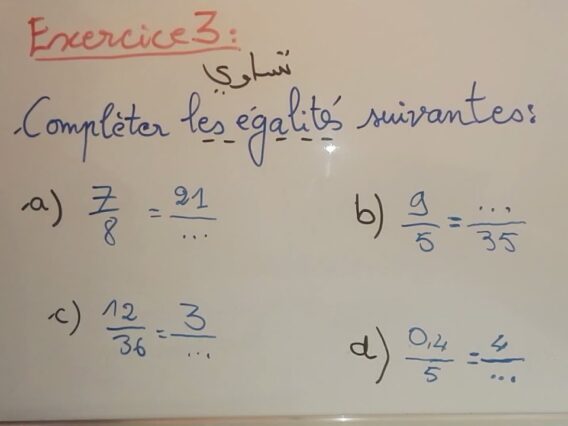 Exercice 3:
تساوي
Compléter les égalités suivantes:
a) 7/8 = 21/...
b) 9/5 = .../35
c) 12/36 = 3/...
d) 0,4/5 = 4/...